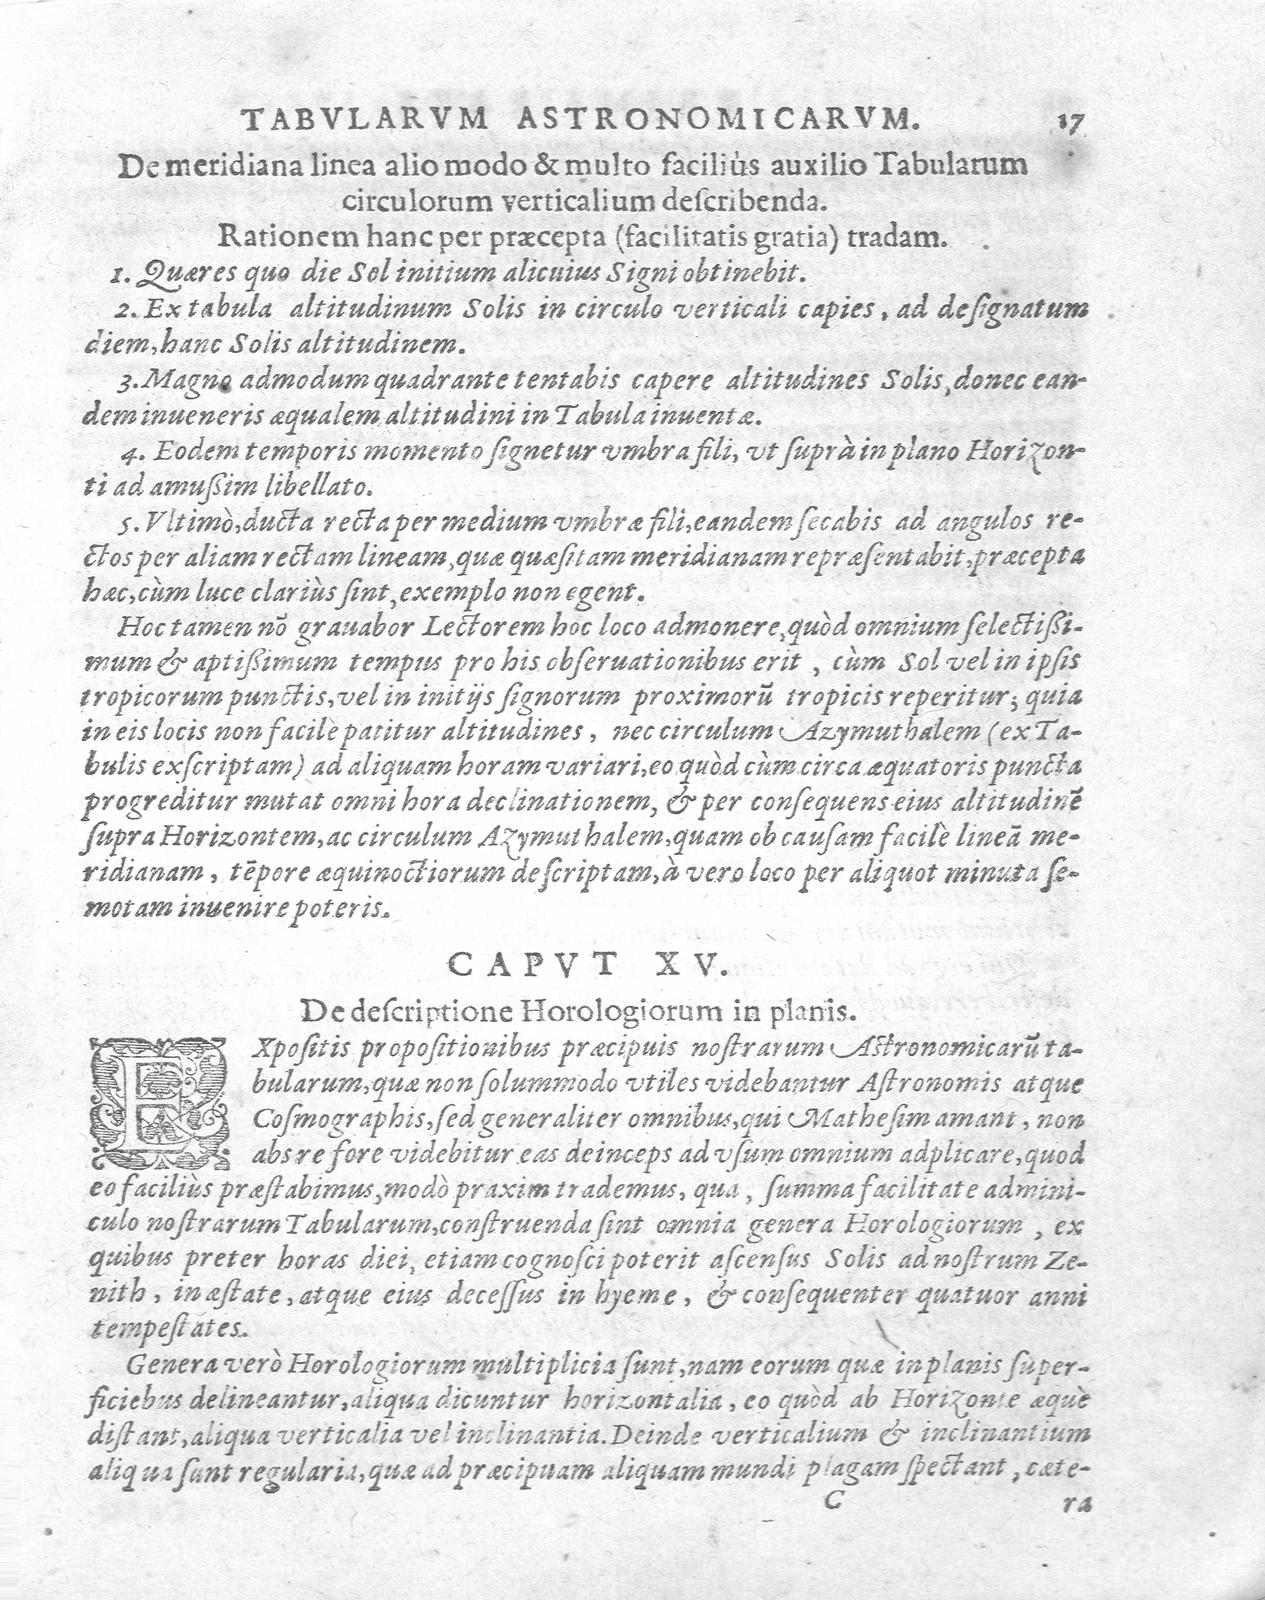 TABVLARVM ASTRONOMICARVM. 17
De meridiana linea alio modo & multo faciliùs auxilio Tabularum
circulorum verticalium deſcribenda.
Rationem hanc per præcepta (facilitatis gratia) tradam.
1. Quæres quo die Sol initium alicuius Signi obtinebit.
2. Ex tabula altitudinum Solis in circulo verticali capies, ad deſignatum
diem, hanc Solis altitudinem.
3. Magno admodum quadrante tentabis capere altitudines Solis, donec ean-
dem inueneris æqualem altitudini in Tabula inuentæ.
4. Eodem temporis momento ſignetur vmbra fili, vt ſuprà in plano Horizon-
ti ad amuſſim libellato.
5. Vltimò, ducta recta per medium vmbræ fili, eandem ſecabis ad angulos re-
ctos per aliam rectam lineam, quæ quæſitam meridianam repræſentabit, præcepta
hæc, cùm luce clariùs ſint, exemplo non egent.
Hoc tamen nō grauabor Lectorem hoc loco admonere, quòd omnium ſelectiſſi-
mum & aptiſſimum tempus pro his obſeruationibus erit, cùm Sol vel in ipſis
tropicorum punctis, vel in initijs ſignorum proximorū tropicis reperitur; quia
in eis locis non facilè patitur altitudines, nec circulum Azymuthalem (ex Ta-
bulis exſcriptam) ad aliquam horam variari, eo quòd cùm circa æquatoris puncta
progreditur mutat omni hora declinationem, & per conſequens eius altitudinē
ſupra Horizontem, ac circulum Azymuthalem, quam ob cauſam facilè lineā me-
ridianam, tēpore æquinoctiorum deſcriptam, à vero loco per aliquot minuta ſe-
motam inuenire poteris.
CAPVT XV.
De deſcriptione Horologiorum in planis.
EXpoſitis propoſitionibus præcipuis noſtrarum Aſtronomicarū ta-
bularum, quæ non ſolummodo vtiles videbantur Aſtronomis atque
Coſmographis, ſed generaliter omnibus, qui Matheſim amant, non
abs re fore videbitur eas deinceps ad vſum omnium adplicare, quod
eo faciliùs præſtabimus, modò praxim trademus, qua, ſumma facilitate admini-
culo noſtrarum Tabularum, conſtruenda ſint omnia genera Horologiorum, ex
quibus preter horas diei, etiam cognoſci poterit aſcenſus Solis ad noſtrum Ze-
nith, in æſtate, atque eius deceſſus in hyeme, & conſequenter quatuor anni
tempeſtates.
Genera verò Horologiorum multiplicia ſunt, nam eorum quæ in planis ſuper-
ficiebus delineantur, aliqua dicuntur horizontalia, eo quòd ab Horizonte æquè
diſtant, aliqua verticalia vel inclinantia. Deinde verticalium & inclinantium
aliqua ſunt regularia, quæ ad præcipuam aliquam mundi plagam ſpectant, cæte-
C ra